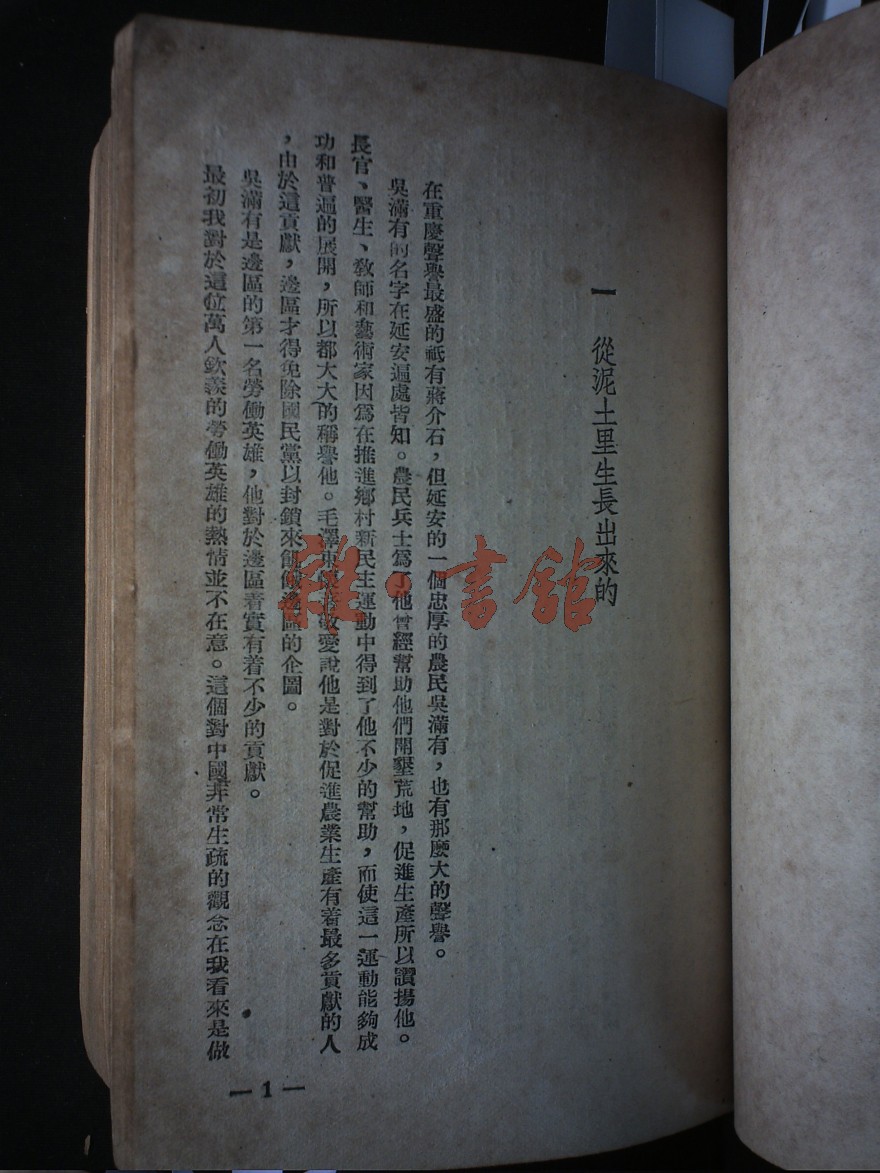 一 從泥土里生長出來的
在重慶聲譽最盛的祗有蔣介石，但延安的一個忠厚的農民吳滿有，也有那麼大的聲譽。
吳滿有的名字在延安遍處皆知。農民兵士爲了他曾經幫助他們開墾荒地，促進生產所以讚揚他。
長官、醫生、敎師和藝術家因爲在推進鄉村新民主運動中得到了他不少的幫助，而使這一運動能夠成
功和普遍的展開，所以都大大的稱譽他。毛澤東敬愛說他是對於促進農業生產有着最多貢獻的人
，由於這貢獻，邊區才得免除國民黨以封鎖來邊區的企圖。
吳滿有是邊區的第一名勞働英雄，他對於邊區着實有着不少的貢獻。
最初我對於這位萬人欽羨的勞働英雄的熱情並不在意。這個對中國非常生疏的觀念在我看來是做
— 1 —
雜·書館